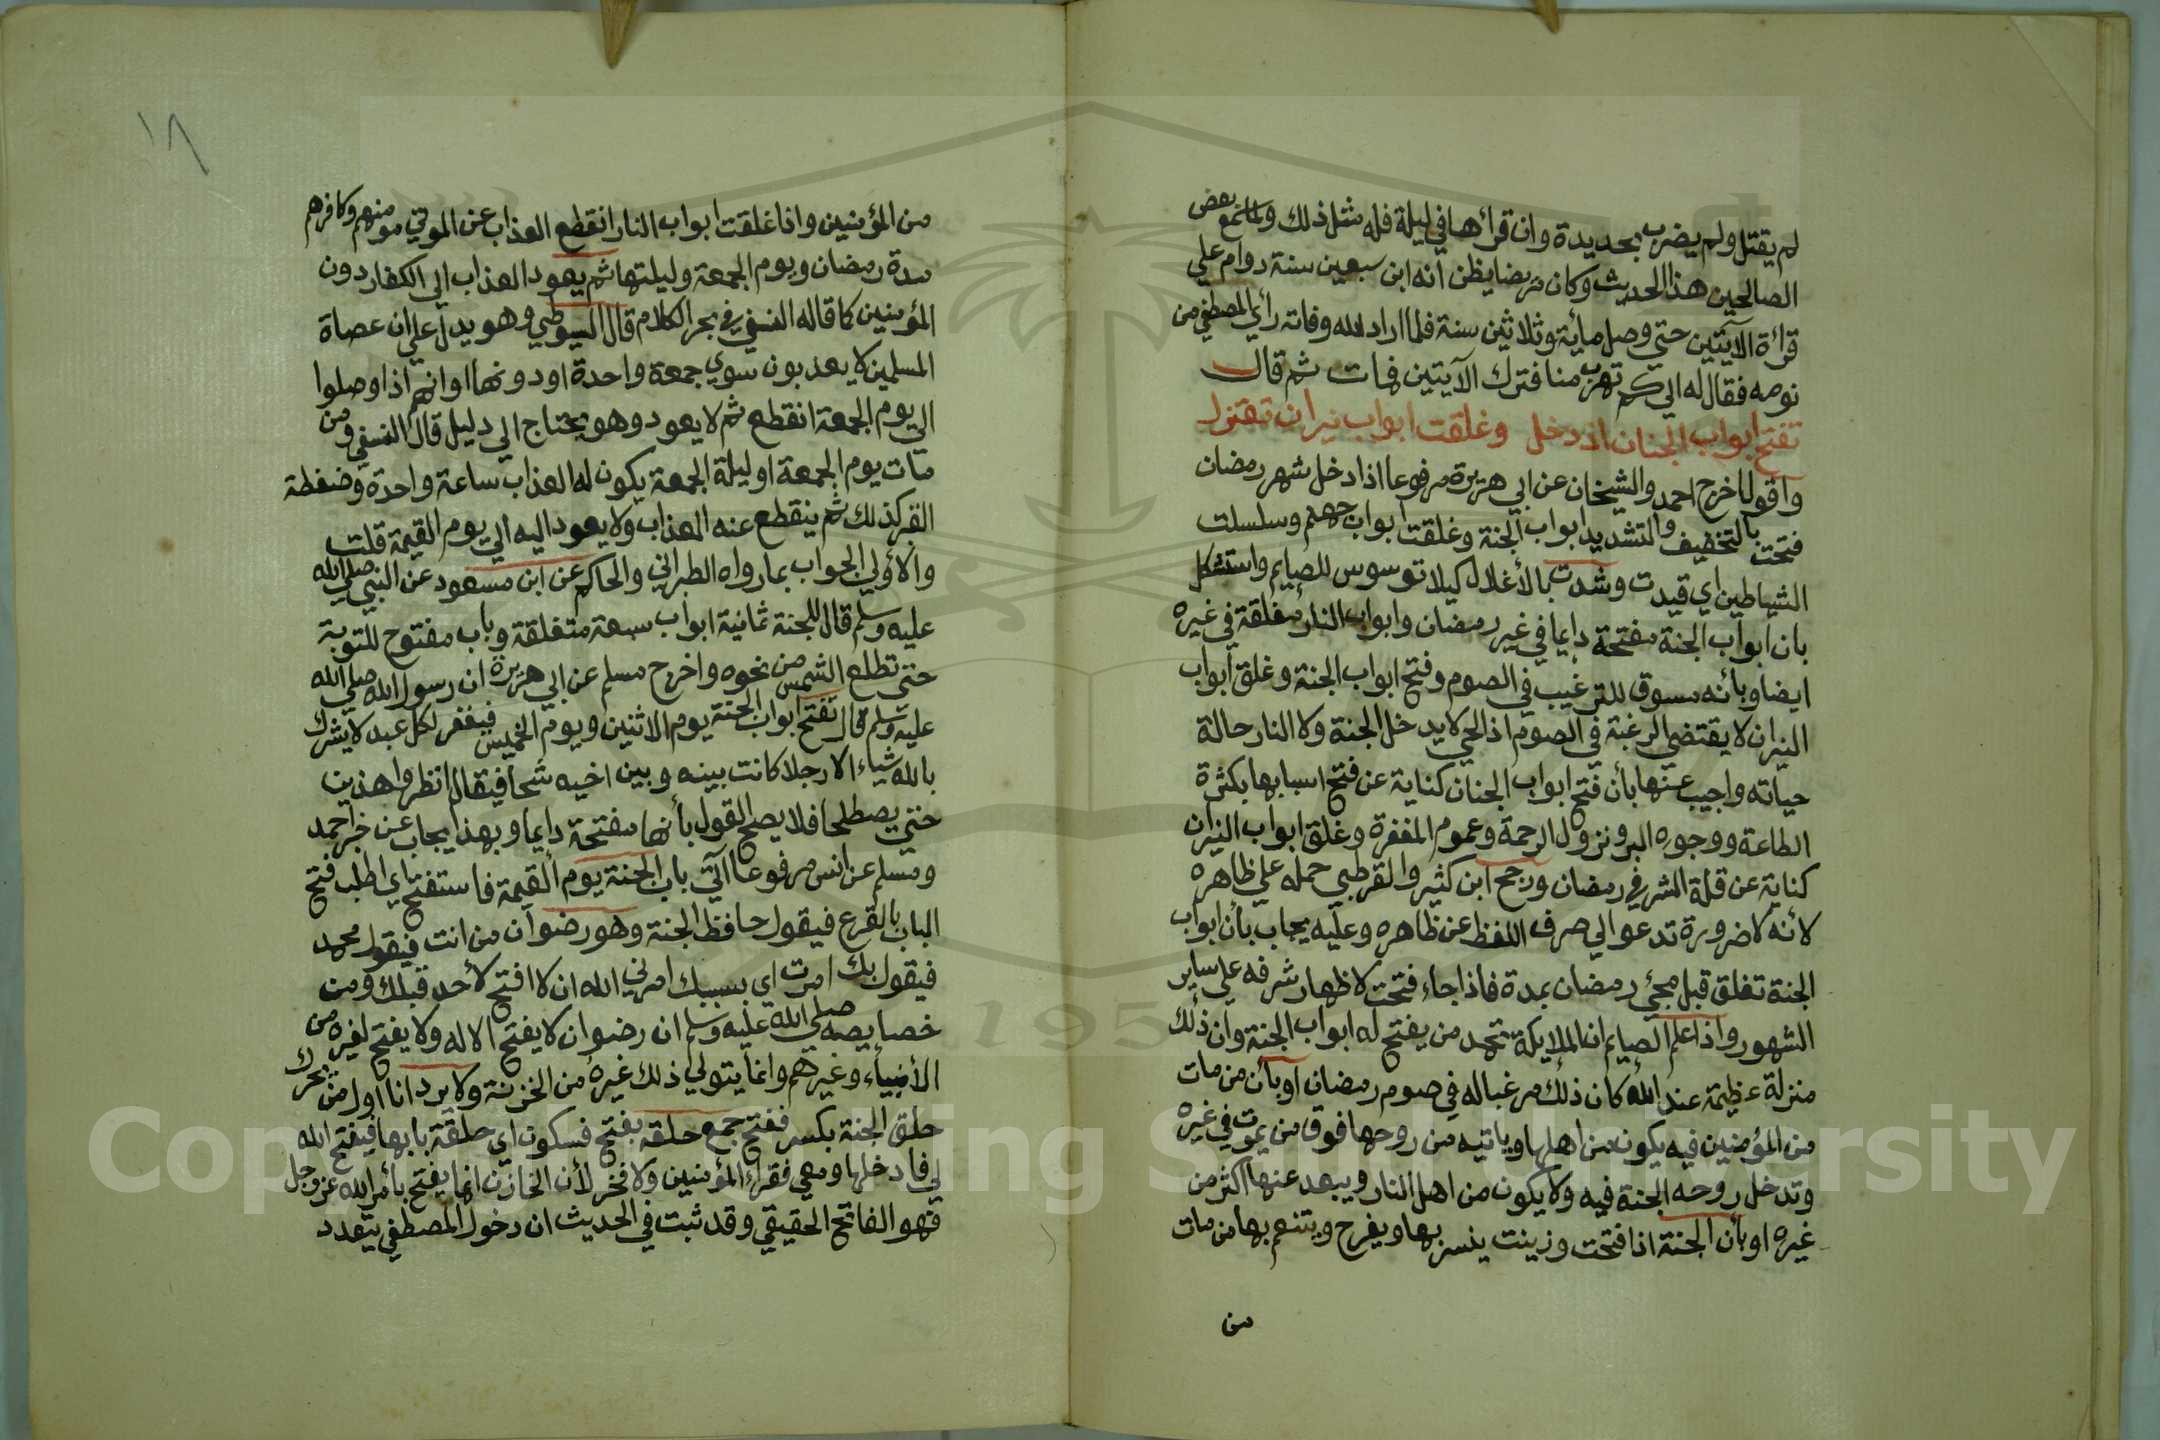 لم يقتل ولم يضرب بحديدة وان قرأها في ليلة فله مثل ذلك ولما سمع بعض
الصالحين هذا الحديث وكان مريضا يظن انه ابن سبعين سنة دوام علي
قرأة الآيتين حتي وصل مأية وثلاثين سنة فلما اراد الله وفاته رأي المصطفي من
نومه فقال له الي كم تهرب منا فترك الآيتين فمات ثم قال
تفتح ابواب الجنان اذ دخل وغلقت ابواب نيران تقتزل
واقول اخرج احمد والشيخان عن ابي هريرة مرفوعا اذا دخل شهر رمضان
فتحت بالتخفيف والتشديد ابواب الجنة وغلقت ابواب جهنم وسلسلت
الشياطين اي قيدت وشدت بالأغلال كيلا توسوس للصايم واستشكل
بان ابواب الجنة مفتحة دايما في غير رمضان وابواب النار مغلقة في غيره
ايضا وبأنه مسوق للترغيب في الصوم وفتح ابواب الجنة وغلق ابواب
النيران لا يقتضي الرغبة في الصوم اذ الحي لا يدخل الجنة ولا النار حالة
حياته واجيب عنها بأن فتح ابواب الجنان كناية عن فتح اسبابها بكثرة
الطاعة ووجوه البر ونزول الرحمة وعموم المغفرة وغلق ابواب النيران
كناية عن قلة الشر في رمضان ورجح ابن كثير والقرطبي حمله علي ظاهره
لأنه لا ضرورة تدعو الي صرف اللفظ عن ظاهره وعليه يجاب بأن ابواب
الجنة تغلق قبل مجئي رمضان بمدة فاذا جاء فتحت لاظهار شرفه علي ساير
الشهور واذا علم الصايم ان الملايكة تحمد من يفتح له ابواب الجنة وان ذلك
منزلة عظيمة عند الله كان ذلك مرغبا له في صوم رمضان او بأن من مات
من المؤمنين فيه يكون من اهلها وياتيه من روحها فوق من يموت في غيره
وتدخل روحه الجنة فيه ولا يكون من اهل النار ويبعد عنها اكثر من
غيره او بأن الجنة اذا فتحت وزينت ينسر بها ويفرح ويتنعم بها من مات
من
١٨
من المؤمنين واذا غلقت ابواب النار انقطع العذاب عن الموتي مومنهم وكافرهم
مدة رمضان ويوم الجمعة وليلتها ثم يعود العذاب الي الكفار دون
المؤمنين كما قاله النسفي في بحر الكلام قال السيوطي وهو يدل علي ان عصاة
المسلمين لا يعذبون سوي جمعة واحدة او دونها وانهم اذا وصلوا
الي يوم الجمعة انقطع ثم لا يعود وهو يحتاج الي دليل قال النسفي ومن
مات يوم الجمعة او ليلة الجمعة يكون له العذاب ساعة واحدة وضغطة
القبر كذلك ثم ينقطع عنه العذاب ولا يعود اليه الي يوم القيمة قلت
والأولي الجواب بما رواه الطبراني والحاكم عن ابن مسعود عن النبي صلي الله
عليه وسلم قال للجنة ثمانية ابواب سبعة متغلقة وباب مفتوح للتوبة
حتي تطلع الشمس من نحوه واخرج مسلم عن ابي هريرة ان رسول الله صلي الله
عليه وسلم قال تفتح ابواب الجنة يوم الاثنين ويوم الخميس فيغفر لكل عبد لا يشرك
بالله شياء الا رجلا كانت بينه وبين اخيه شحا فيقال انظروا هذين
حتي يصطلحا فلا يصح القول بأنها مفتحة دايما وبهذا يجاب عن خبر احمد
ومسلم عن انس مرفوعا آتي باب الجنة يوم القيمة فاستفتح اي اطلب فتح
الباب بالقرع فيقول حافظ الجنة وهو رضوان من انت فيقول محمد
فيقول بك امرت اي بسببك امرني الله ان لا افتح لأحد قبلك ومن
خصايصه صلي الله عليه وسلم ان رضوان لا يفتح الا له ولا يفتح لغيره من
الأنبياء وغيرهم وانما يتولي ذلك غيره من الخزنة ولا يرد انا اول من يحرك
حلق الجنة بكسر ففتح جمع حلقة بفتح فسكون اي حلقة بابها فيفتح الله
لي فادخلها ومعي فقراء المؤمنين ولا فخر لأن الخازن انما يفتح بأمر الله عز وجل
فهو الفاتح الحقيقي وقد ثبت في الحديث ان دخول المصطفي يتعدد